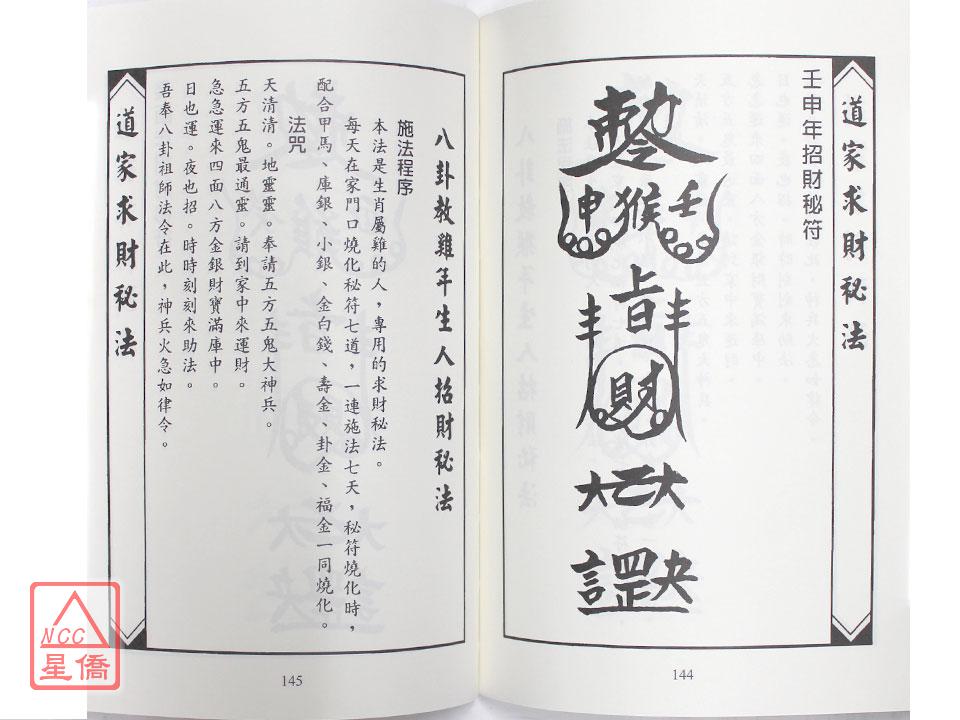 道家求財秘法
壬申年招財秘符
壬
猴
申
旨
財
144
八卦教雞年生人招財秘法
施法程序
本法是生肖屬雞的人，專用的求財秘法。
每天在家門口燒化秘符七道，一連施法七天，秘符燒化時，
配合甲馬、庫銀、小銀、金白錢、壽金、卦金、福金一同燒化。
法咒
天清清。地靈靈。奉請五方五鬼大神兵。
五方五鬼最通靈。請到家中來運財。
急急運來四面八方金銀財寶滿庫中。
日也運。夜也招。時時刻刻來助法。
吾奉八卦祖師法令在此，神兵火急如律令。
道家求財秘法
145
NCC
星僑